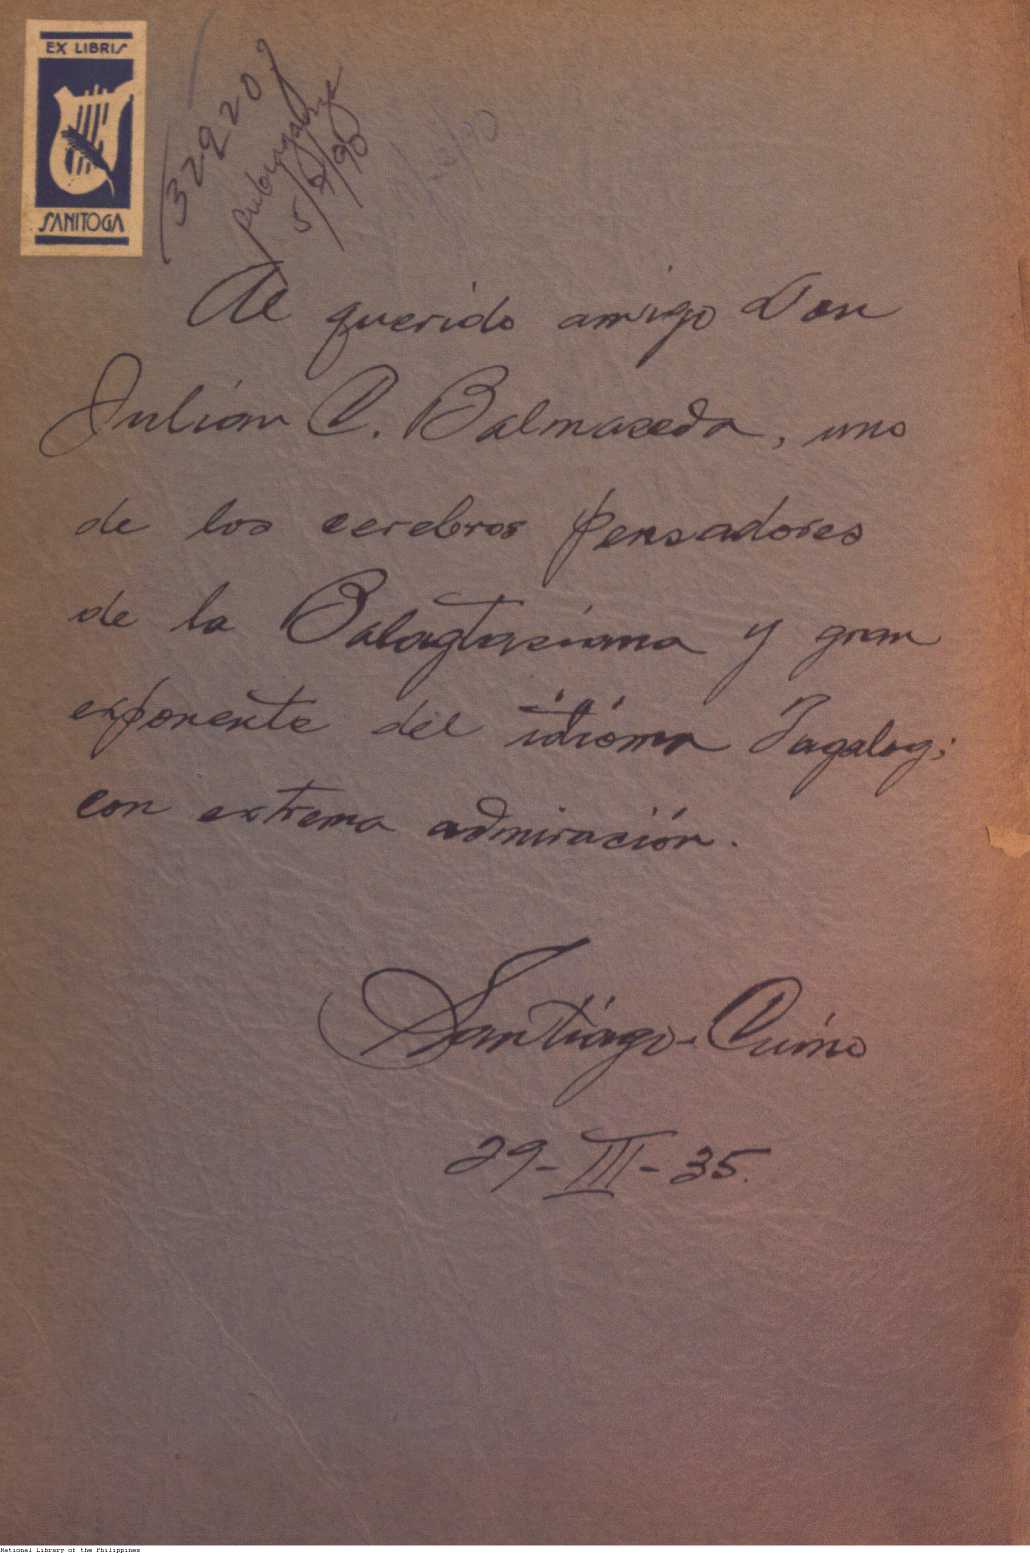 EX LIBRIS
SANITOGA
32920
5/2/90
Al querido amigo Don
Julián C. Balmaseda, uno
de los cerebros pensadores
de la Balagtasiana y gran
exponente del idioma Tagalog;
con extrema admiración.
Santiago-Cuino
29-III-35.
National Library of the Philippines